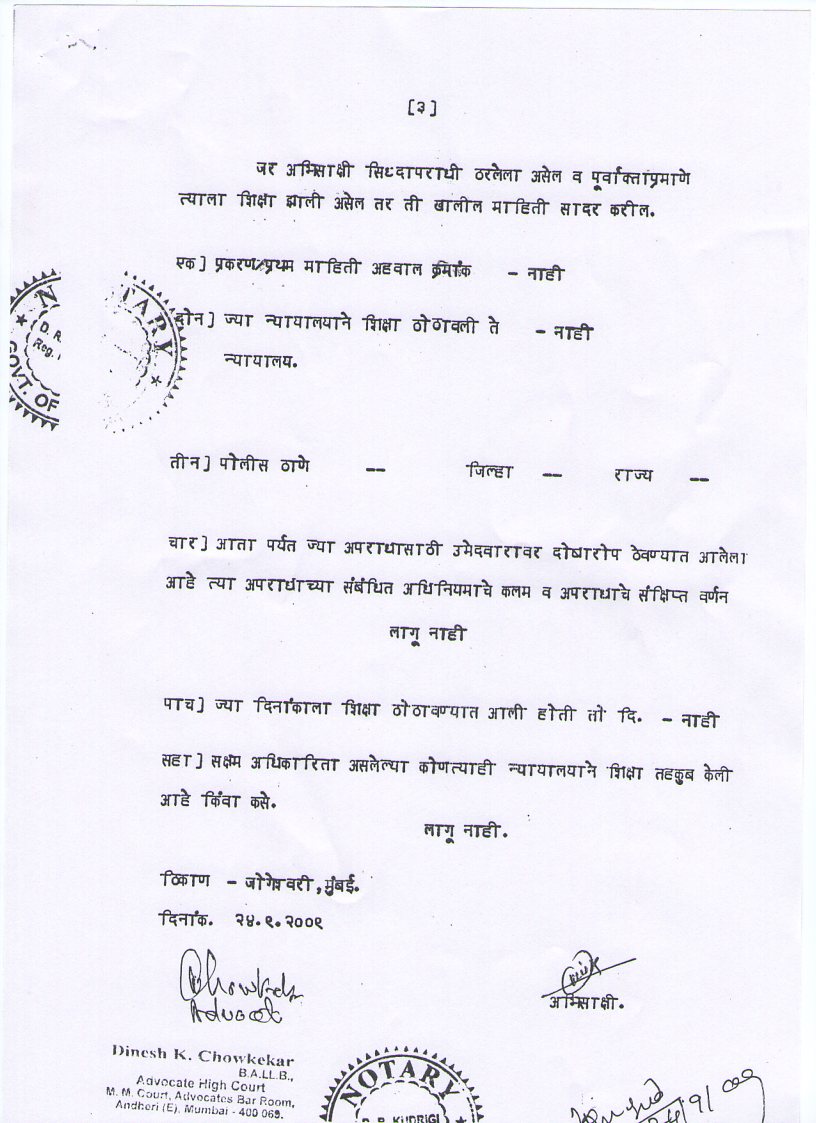 [३]
जर अभिसाक्षी सिध्दापराधी ठरलेला असेल व पूर्वाक्ताप्रमाणे
त्याला शिक्षा झाली असेल तर ती खालील माहिती सादर करील.
एक] प्रकरण/प्रथम माहिती अहवाल क्रमांक - नाही
दोन] ज्या न्यायालयाने शिक्षा ठोठावली ते - नाही
न्यायालय.
NOTARY
D. R.
Reg.
GOVT. OF
तीन] पोलीस ठाणे -- जिल्हा -- राज्य --
चार] आता पर्यत ज्या अपराधासाठी उमेदवारावर दोषारोप ठेवण्यात आलेला
आहे त्या अपराधाच्या संबंधित अधिनियमाचे कलम व अपराधाचे संक्षिप्त वर्णन
लागू नाही
पाच] ज्या दिनांकाला शिक्षा ठोठावण्यात आली होती तो दि. - नाही
सहा] सक्षम अधिकारिता असलेल्या कोणत्याही न्यायालयाने शिक्षा तहकुब केली
आहे किंवा कसे.
लागू नाही.
ठिकाण - जोगेश्वरी,मुंबई.
दिनांक. २४.९.२००९
Advocate
अभिसाक्षी.
Dinesh K. Chowkekar
B.A.LL.B.,
Advocate High Court
M. M. Court, Advocates Bar Room,
Andheri (E), Mumbai - 400 069.
NOTARY
KUDRIGI